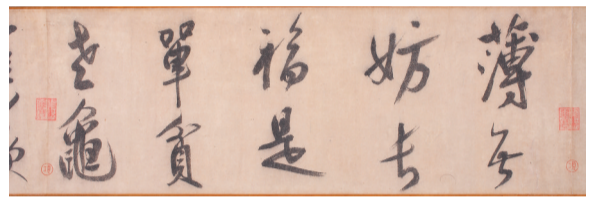 薄無
妨長
福是
單貧
老龜